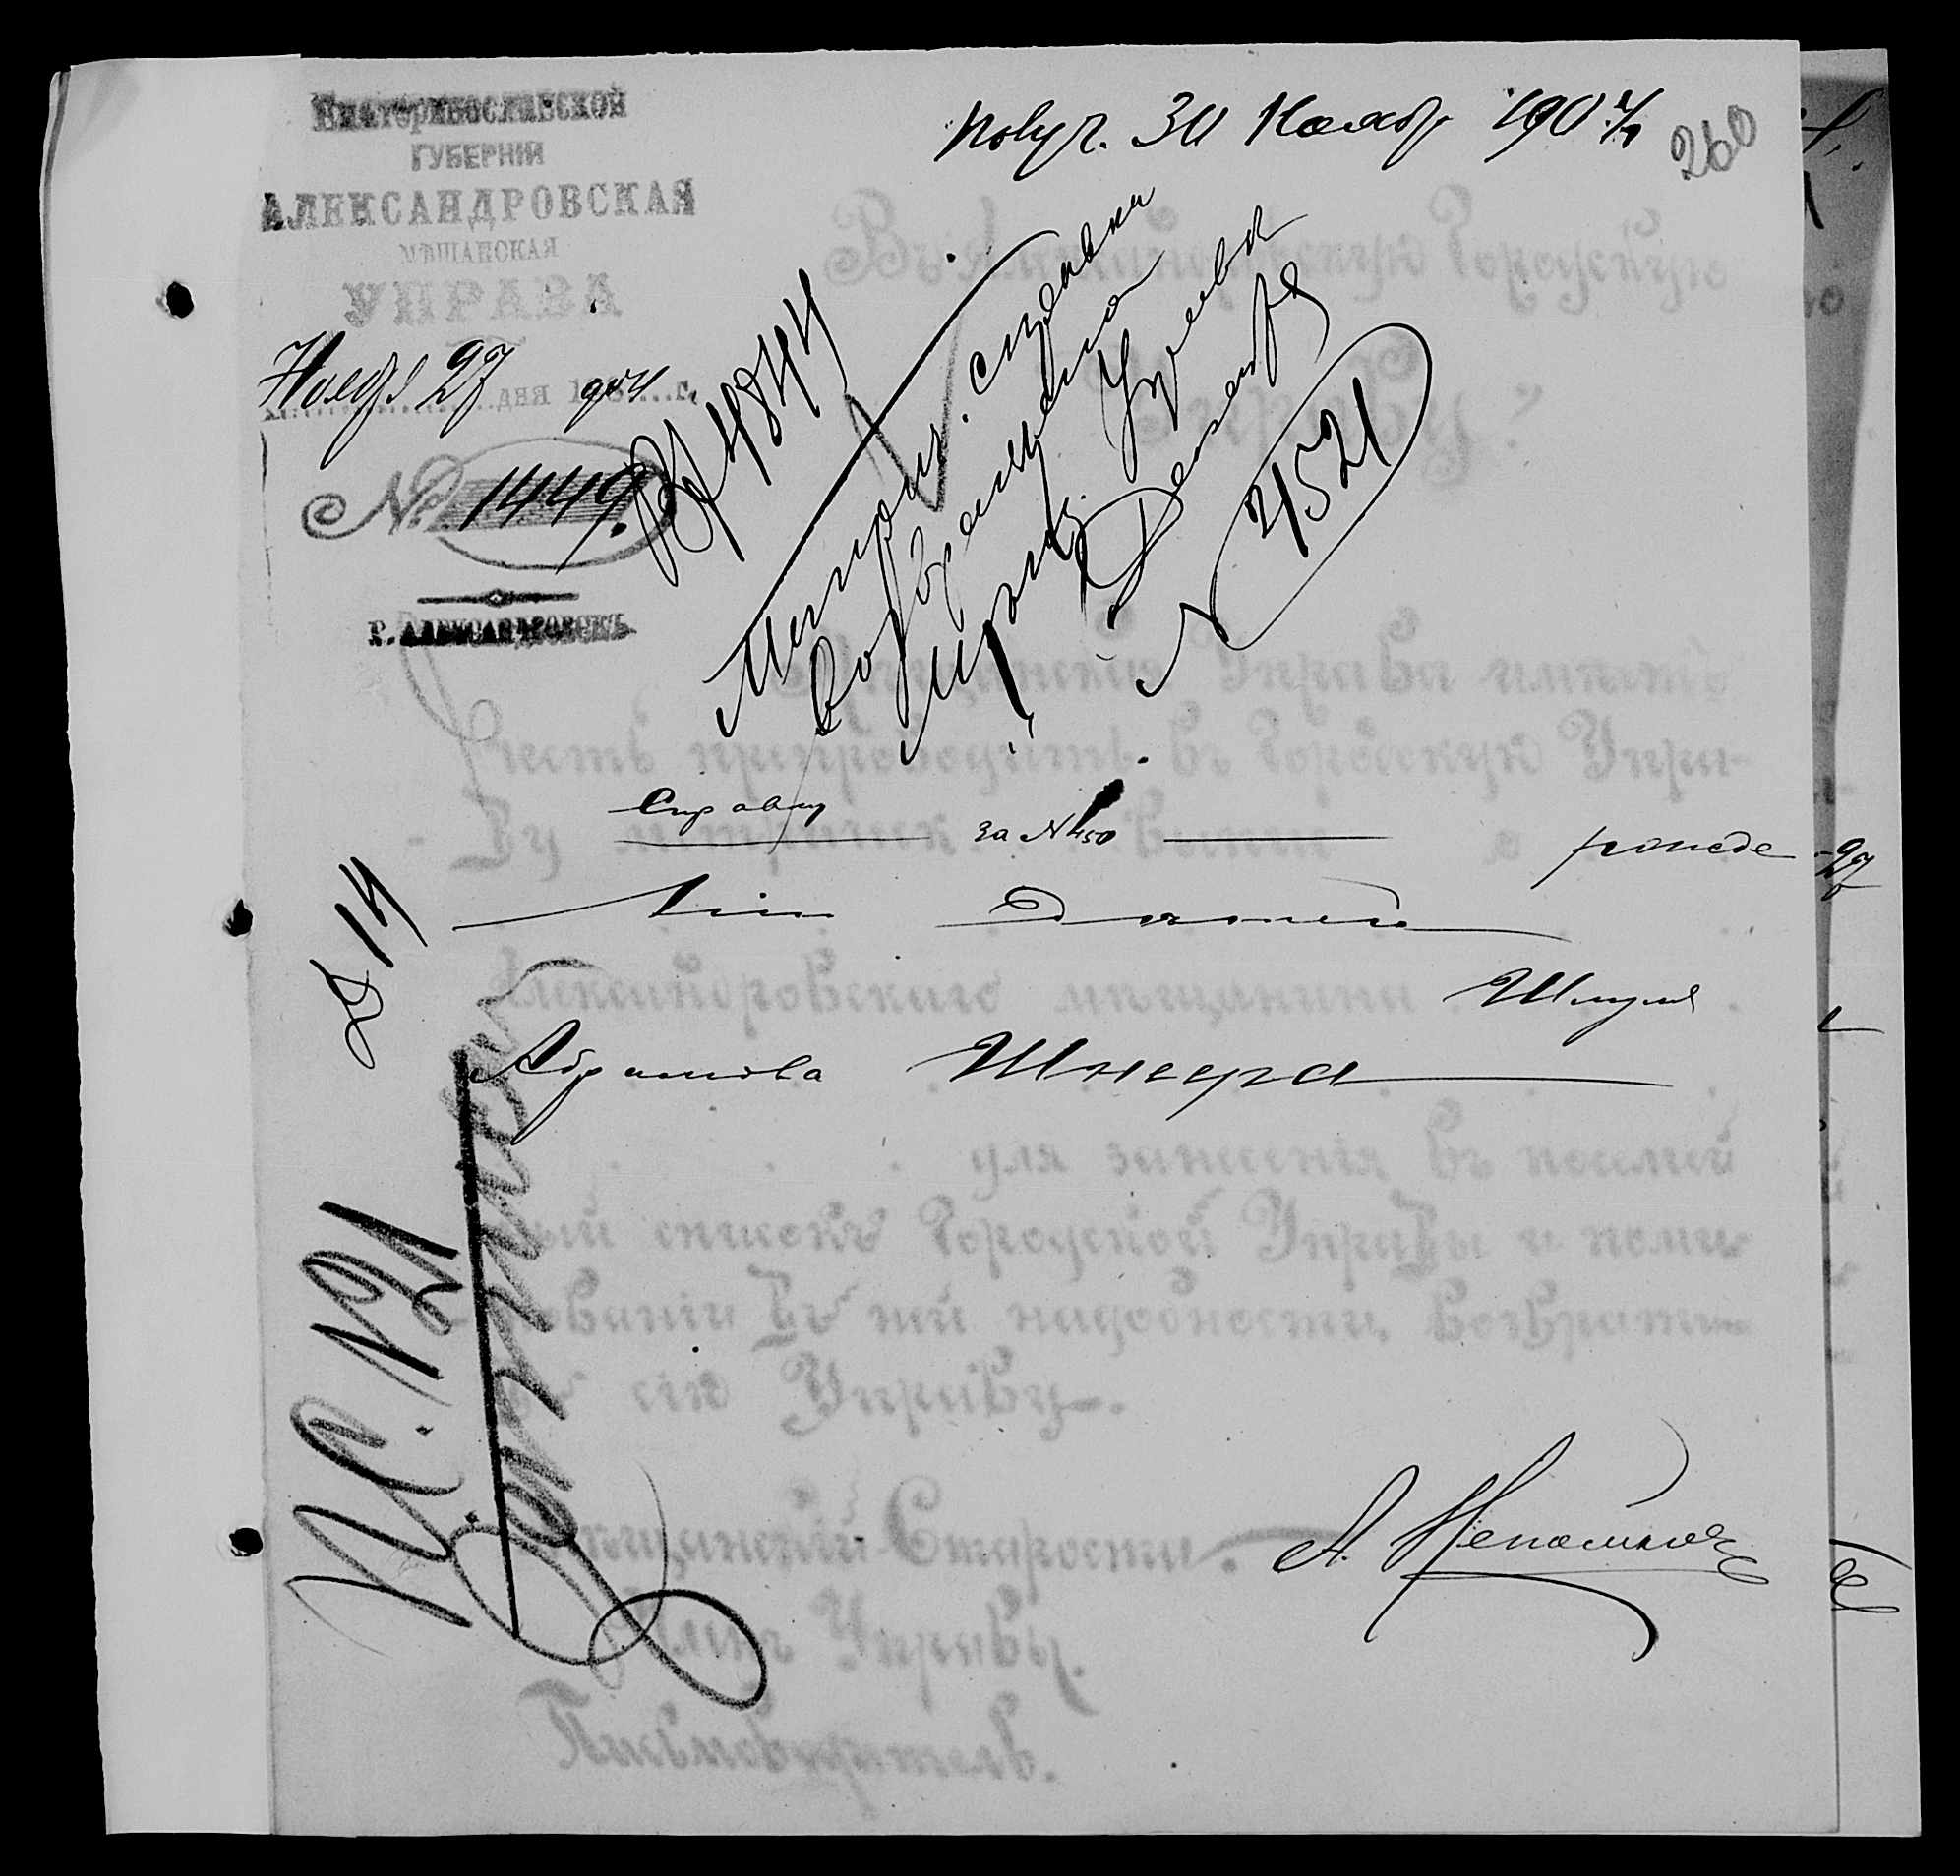 Екатеринославской
ГУБЕРНІИ
АЛЕКСАНДРОВСКАЯ
МѢЩАНСКАЯ
УПРАВА
Ноября 27 дня 904 г.
№ 1449.
Г. АЛЕКСАНДРОВСКЪ
Получ. 30 Ноябр 1904
260
Вх 4844
Метрич. справка
возвращена
Мѣщ. Управѣ
Декабря
№ 4521
Въ Александровскую Городскую
Управу.
Мѣщанская Управа имѣетъ
честь препроводить въ Городскую Упра-
ву
Справку за № 450 о рожде-
ніи
Александровскаго мѣщанина Шмуля
Абрамова Шнеера
для занесенія въ посемей
ный списокъ Городской Управы и поми-
нованіи въ ней надобности, возврати-
сію Управу.
Д 14
П.С. № 21
Мѣщанскій Староста
А. Непомнящ
Членъ Управы.
Письмоводитель.